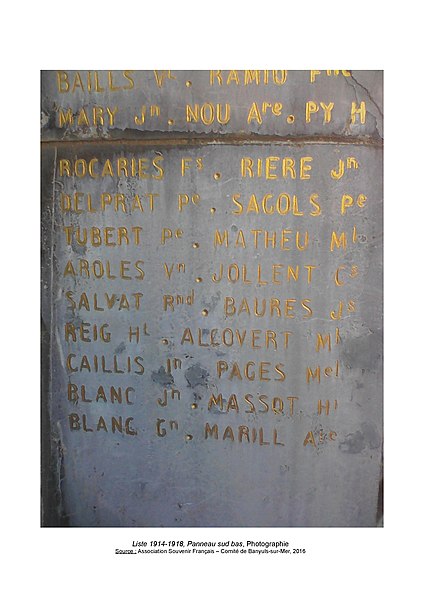 BAILLS Vt . RAMIO Fnt
MARY Jn . NOU Are . PY H
ROCARIES Fs . RIERE Jn
DELPRAT Pe . SAGOLS Pe
TUBERT Pe . MATHEU Ml
AROLES Vn . JOLLENT Cs
SALVAT Rnd . BAURES Js
REIG HL . ALCOVERT Ml
CAILLIS Jn . PAGES Mel
BLANC Jn . MASSOT Hi
BLANC Gn . MARILL Are
Liste 1914-1918, Panneau sud bas, Photographie
Source : Association Souvenir Français – Comité de Banyuls-sur-Mer, 2016